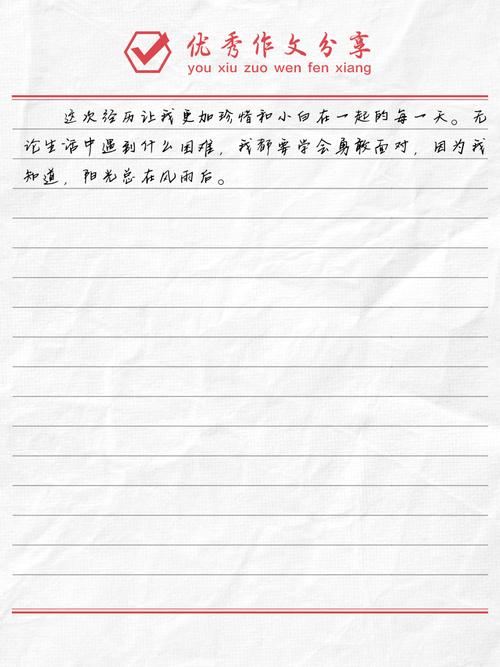 优秀作文分享
you xiu zuo wen fen xiang
这次经历让我更加珍惜和小白在一起的每一天。无
论生活中遇到什么困难，我都要学会勇敢面对，因为我
知道，阳光总在风雨后。